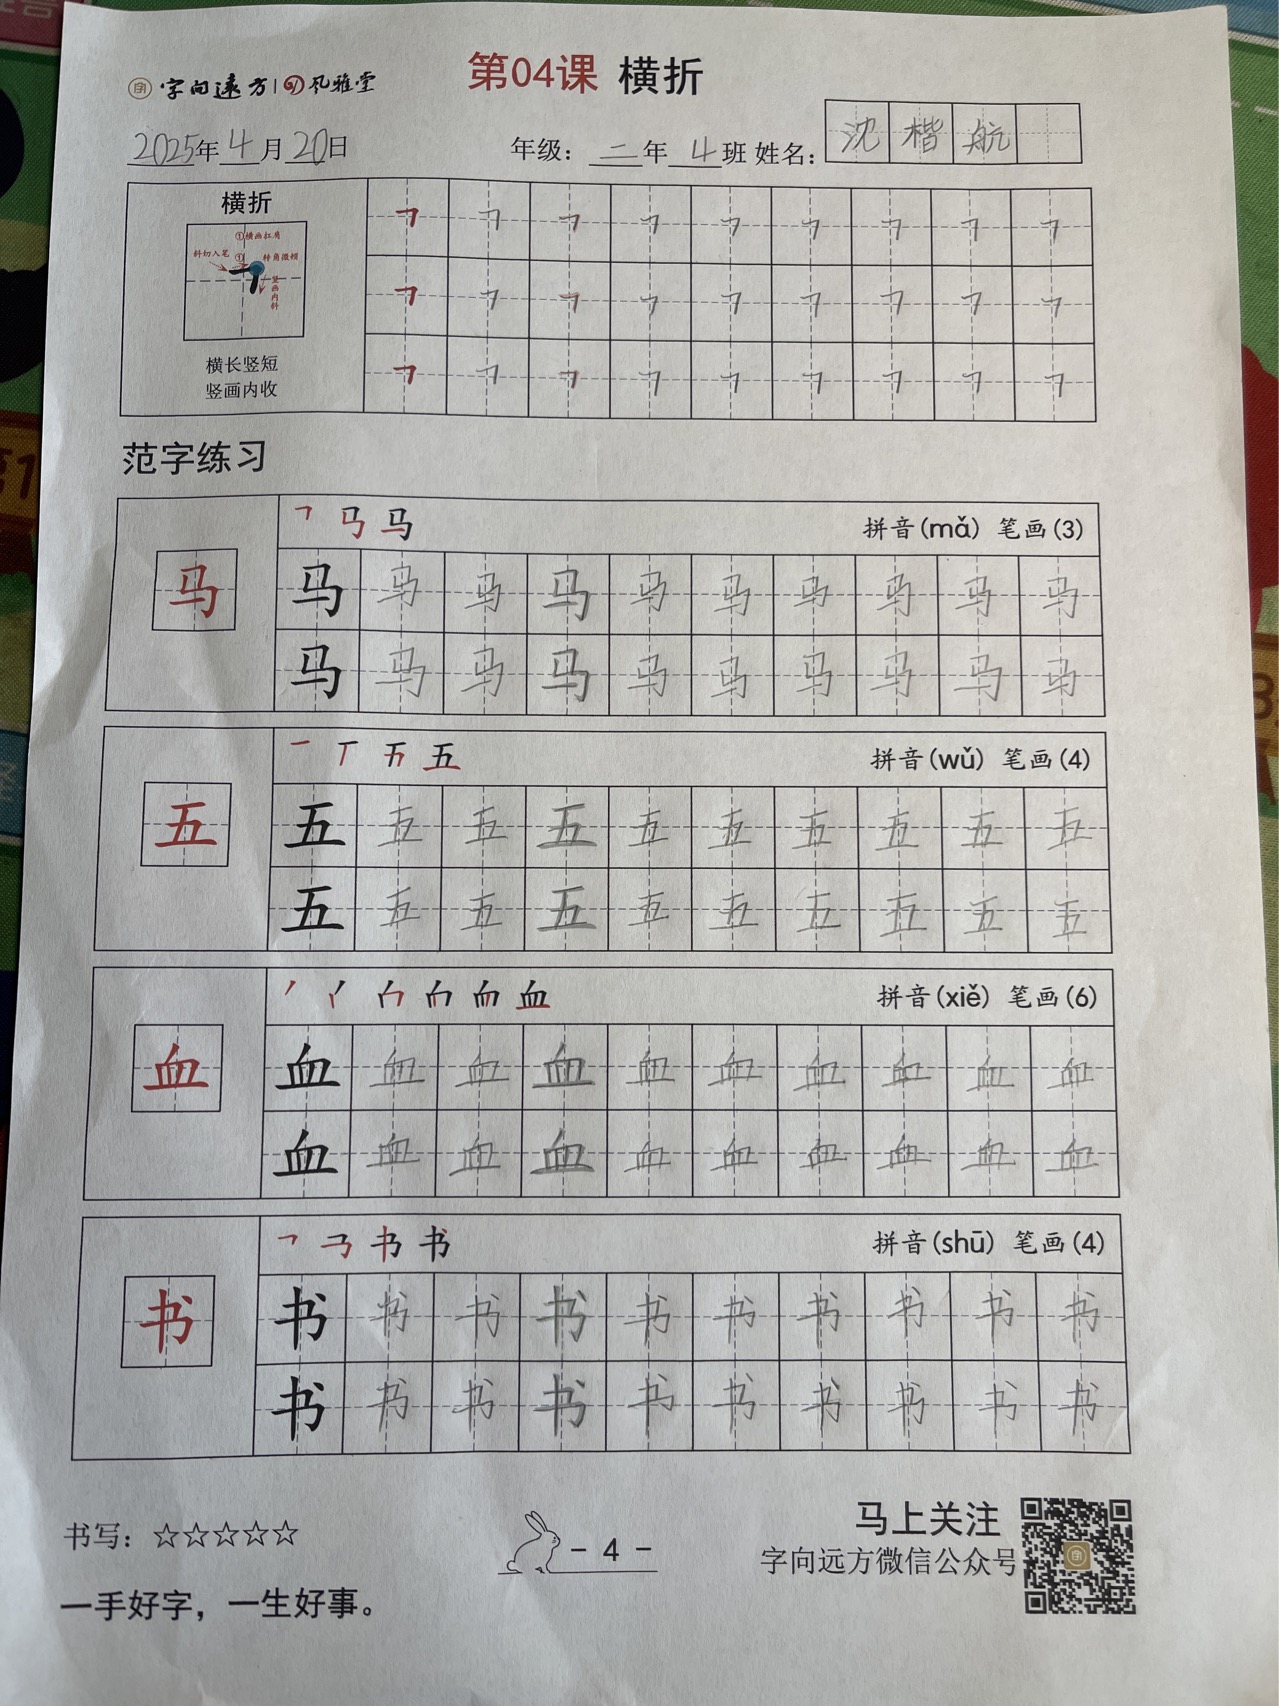 字向远方 风雅堂
第04课 横折
2025年4月20日 年级：二年4班 姓名：沈楷航
横折
①横画扛肩
斜切入笔 ① 转角微顿
竖画内斜
横长竖短
竖画内收
范字练习
拼音(mǎ) 笔画(3)
马 马 马 马 马 马 马 马 马 马 马
马 马 马 马 马 马 马 马 马 马
拼音(wǔ) 笔画(4)
五 五 五 五 五 五 五 五 五 五 五
五 五 五 五 五 五 五 五 五 五
拼音(xiě) 笔画(6)
血 血 血 血 血 血 血 血 血 血 血
血 血 血 血 血 血 血 血 血 血
拼音(shū) 笔画(4)
书 书 书 书 书 书 书 书 书 书 书
书 书 书 书 书 书 书 书 书 书
书写：☆☆☆☆☆
一手好字，一生好事。
- 4 -
马上关注
字向远方微信公众号